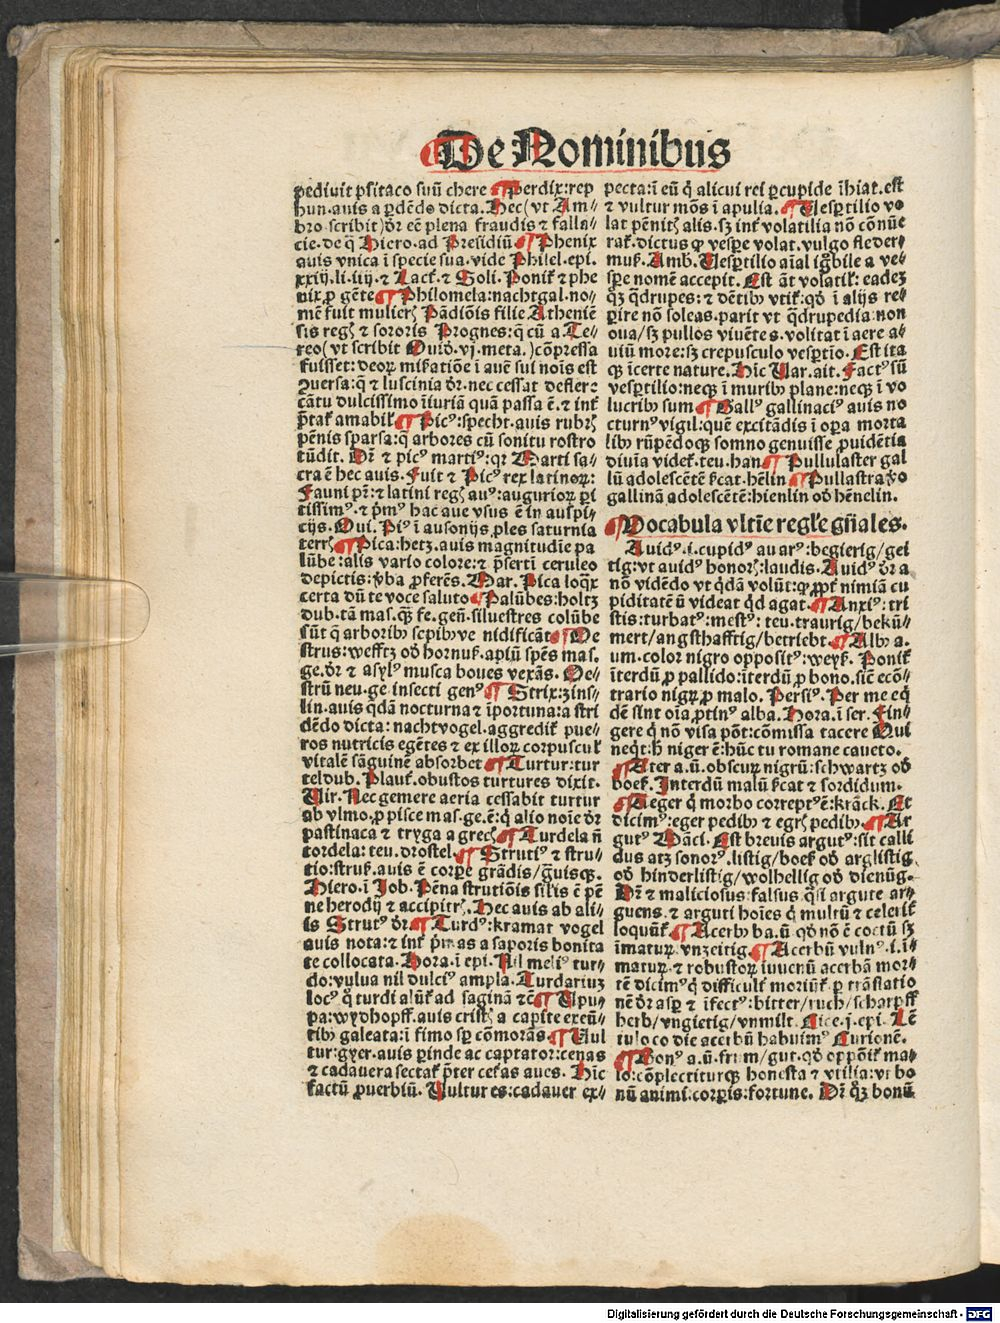 De Nominibus
pediuit psitaco suū chere ¶ Perdix:rep
hun.auis a pdēdo dicta.Hec(vt Am⸗
bro scribit)dr̄ eē plena fraudis ⁊ falla⸗
cie.de q̄ Hiero.ad Presidiū ¶ Phenix
auis vnica ī specie sua.vide Philel.epi.
xxiij.li.iiij.⁊ Lact. ⁊ Soli. Ponit̄ ⁊ phe
nix p gēte ¶ Philomela:nachtgal.no⸗
mē fuit mulier Pādiōis filie Atheniē
sis reg ⁊ sororis Prognes:q̄ cū a Te⸗
reo(vt scribit Ouid.vj.meta.)cōpressa
fuisset:deoꝝ misatiōe ī auē sui nois est
ꝯuersa:q̄ ⁊ luscinia dr̄.nec cessat deflere
cātu dulcissimo īiuriā quā passa ē.⁊ int̄
amabil ¶ Picꝰ:specht.auis rubꝫ
pēnis sparsa:q̄ arbores cū sonitu rostro
tūdit. Dr̄ ⁊ picꝰ martiꝰ:qꝛ Marti sa⸗
cra ē hec auis.Fuit ⁊ Picꝰ rex latinoꝝ:
Fauni pr̄:⁊ latini reg auꝰ:auguriorꝝ pi
tissimꝰ.⁊ pmꝰ hac aue vsus ē in auspi⸗
cijs.Oui. Piꝰ ī ausonijs ples saturnia
terr ¶ Pica:hetz.auis magnitudīe pa
lūbe:alis vario colore:⁊ psertī ceruleo
depictis:vba pferēs.Mar. Pica loqꝫ
certa dn̄ te voce saluto ¶ Palūbes:holtz
dub.tā mas.qꝫ fe.gen̄.siluestres colūbe
sūt q̄ arboribꝫ sepibꝫ ve nidificāt ¶ Oe
strus:wefftz od hornuß.apiū spēs mas.
ge.dr̄ ⁊ asylꝰ musca boues vexās. Oe⸗
strū neu.ge insecti genꝰ ¶ Strix:zins⸗
lin.auis qdā nocturna ⁊ īportuna:a stri
dēdo dicta:nachtvogel.aggredit̄ pue⸗
ros nutricis egētes ⁊ ex illoꝝ corpuscul
vitalē sāguinē absorbet ¶ Turtur:tur
teldub. Plaut.obustos turtures dixit.
Vir.Nec gemere aeria cessabit turtur
ab vlmo.p pisce mas.ge.ē:q̄ alio noīe dr̄
pastinaca ⁊ tryga a grec ¶ Turdela n̄
tordela:teu.drostel ¶ Strutiꝰ ⁊ stru⸗
tio:struß.auis ē corpe grādis/ḡuisqꝫ.
Hiero.ī Job. Pēna strutiōis silis ē pē
ne herodij ⁊ accipitr.Hec auis ab ali⸗
is Strutꝰ dr̄ ¶ Turdꝰ:kramat vogel
auis nota:⁊ int̄ pmas a saporis bonita
te collocata.Hora.ī epi. Nil meliꝰ tur⸗
do:vulua nil dulciꝰ ampla. Turdariuꝫ
locꝰ q̄ turdi alūt̄ ad saginā ⁊cē ¶ Upu⸗
pa:wydhopff.auis crist a capite exeū⸗
tibꝫ galeata:ī fimo sp cōmorās. ¶ Vul
tur:gyer.auis pinde ac captator:cenas
⁊ cadauera sectat̄ pter ceteras aues. Hīc
factū puerbiū. Vultur es:cadauer ex⸗
pecta:ī eū q̄ alicui rei pcupide īhiat.est
⁊ vultur mōs ī apulia. ¶ Vesptilio vo
lat pēnit alis.sꝫ int̄ volatilia nō cōnūe
rat̄.dictus ꝙ vespe volat.vulgo fleder⸗
muß.Amb.Vesptilio aīal igbile a ve⸗
spe nomē accepit.Est āt volatile:eadeꝫ
qꝫ qdrupes:⁊ dētibꝫ vtit̄:qd ī alijs re⸗
pire nō soleas.parit vt qdrupedia:non
oua/sꝫ pullos viuētes.volitat ī aere a⸗
uiū more:sꝫ crepusculo vesptīo.Est ita
qꝫ īcerte nature.Hīc Var.ait.Factꝰ sū
vesptilio:neqꝫ ī muribꝫ plane:neqꝫ ī vo
lucribꝫ sum ¶ Gallꝰ gallinaciꝰ auis no
cturnꝰ vigil:quē excitādis ī opa morta
libꝫ rūpēdoqꝫ somno genuisse puidētia
diuīa videt̄.teu.han ¶ Pullulaster gal
lū adolescētē ßcat.hēlin ¶ Pullastra vo
gallinā adolescētē:hienlin od hēnelin.
¶ Vocabula vltīe regle gn̄ales.
Auidꝰ.i.cupidꝰ auarꝰ:begierig/gei
tig:vt auidꝰ honor:laudis.Auidꝰ dr̄ a
nō vidēdo vt qdā volūt:ꝙ ppt̄ nimiā cu
piditatē n̄ videat qd agat. ¶ Anxiꝰ:tri
stis:turbatꝰ:mestꝰ: teu.traurig/bekū⸗
mert/angsthafftig/betriebt. ¶ Albꝰ a.
um.color nigro oppositꝰ:weyß. Ponit̄
īterdū p pallido:īterdū p bono.sic̄ ecō⸗
trario nigꝝ p malo. Persiꝰ.Per me eq̄
dē sint oīa ptinꝰ alba.Hora.ī ser.Fin⸗
gere q̄ nō visa pōt:cōmissa tacere Qui
neqt:h niger ē:hūc tu romane caueto.
¶ Ater a.ū.obscuꝝ nigrū:schwartz od
boeß.Interdū malū ßcat ⁊ sordidum.
¶ Aeger q̄ morbo correptꝰ ē:krāck.Et
dicimꝰ:eger pedibꝫ ⁊ egr pedibꝫ. ¶ Ar
gutꝰ Māci.Est breuis argutꝰ:sit calli
dus atꝫ sonorꝰ.listig/boeß od arglistig
od hinderlistig/wolhellig od dienūg.
Dr̄ ⁊ maliciosus falsus qsi argute ar⸗
guens.⁊ arguti hoīes q̄ multū ⁊ celerit̄
loquūt̄. ¶ Acerbꝰ ba.ū.qd nō ē coctū sꝫ
īmatuꝝ vnzeitig. ¶ Acerbū vulnꝰ.i.ī⸗
matuꝝ.⁊ robustoꝝ iuuenū acerbā mor⸗
tē dicimꝰ q̄ difficult̄ moriūt̄.p trāslatio
nē dr̄ asp ⁊ īfectꝰ:bitter/ruch/scharpff
herb/vngietig/vnmilt.Cice.j.epi. Lē
tulo co die acerbū habuimꝰ Curionē.
¶ Bonꝰ a.ū.frum/gut.qd oppōit̄ ma⸗
lo:cōplectiturqꝫ honesta ⁊ vtilia:vt bo
nū animi:corpis:fortune. Dr̄ qꝫ bonū
Digitalisierung gefördert durch die Deutsche Forschungsgemeinschaft - DFG